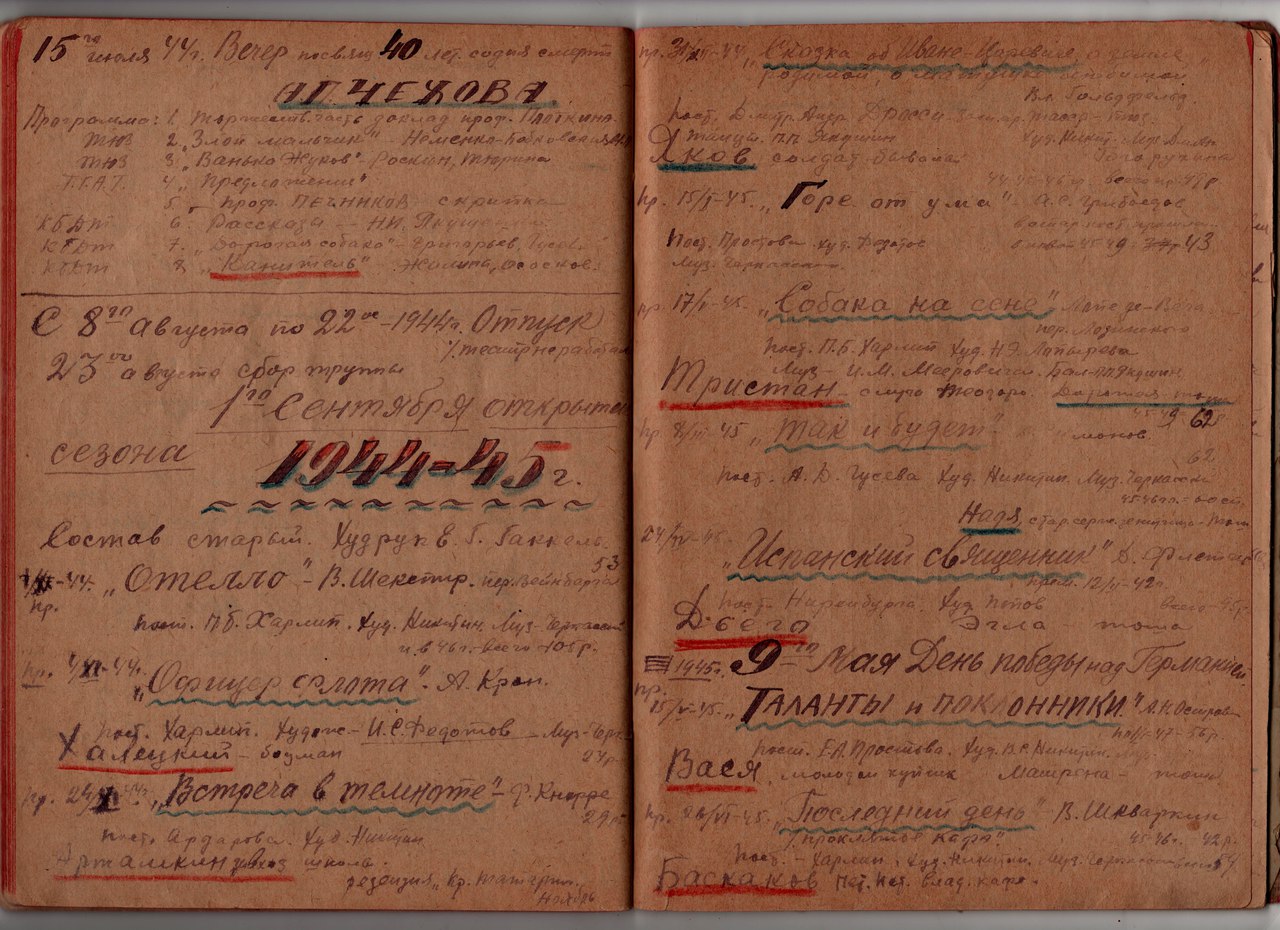 15го июля 44г. Вечер посвящ 40 лет. со дня смерти
А.П. ЧЕХОВА
Программа: 1. Торжеств. часть доклад проф. Плоткина
ТЮЗ 2. „Злой мальчик" – Неменко-Бобковская
ТЮЗ 3. „Ванька Жуков" – Роскин, Тюрина
Т.Г.А.Т. 4 „Предложение"
5. – проф. ПЕЧНИКОВ скрипка
КБДТ 6. Рассказы – Н.И. Якушенко
КБДТ 7. „Дорогая собака" – Григорьев, Гусева
КБДТ 8. „Канитель" – Жилина, Ососков.
С 8го августа по 22ое – 1944г. Отпуск
/театр не работал
23го августа сбор труппы
1го Сентября открытие
сезона
1944=45 г.
Состав старый. Худрук Е. Г. Гаккель.
-44г. „Отелло" – В. Шекспир. пер. Вейнберга 53
пр.
пост. П.Б. Харлип. Худ. Никитин. Муз – Черкасский
и в 46г. – всего 105р.
пр. 7/XI-44г.
„Офицер флота" – А. Крон.
пост. Харлип. Худож – И.С. Федотов – Муз – Черк.
Халецкий – боцман 24р.
пр. 24/XI 44г. „Встреча в темноте" – Ф. Кнорре
29р.
пост. Ардарова. Худ. Никитин
Арталикин завхоз школы.
рецензия „Кр. Татария"
ноябрь
пр. 31/XII-44 „Сказка об Иване-Царевиче, о земле
родимой, о матушке любимой
Вл. Гольдфельд
пост. Дмитр. Андр. Дросси. театр – Тюз.
танцы П.П. Якушин Худ. Никит – Муз.
Яков солдат бывалый
пр. 15/I-45. „Горе от ума" – А.С. Грибоедов
пост. Простова. худ. Федотов 43
Муз. Черкасский
пр. 17/II-45. „Собака на сене" Лопе де – Вега
пер. Лозинского
пост. П.Б. Харлип Худ. Н.Э. Лапырева
Муз – И.М. Маерович. Бал – ПП Якушин.
Тристан слуга Теодоро.
45 49 62
пр. 8/III-45 „Так и будет" Симонов.
62.
пост. А. Д. Гусева Худ. Никитин Муз. Черкасский
45 46гг. –
Надя, стар. серж. зенитчица – Тоша
24/IV-45.
„Испанский священник" Д. Флетчер
прем. 12/II-42г.
пост – Надеинбурга. Худ. Попов всего – 95р.
Д-его Эгла – тоша
1945г. 9го Мая День победы над Германией.
пр.
15/V-45. „ТАЛАНТЫ И ПОКЛОННИКИ." А.Н. Островс.
47 – 56р.
пост. Е.А. Простова. Худ. В.С. Никитин. Муз.
Вася молодой купчик Матрена – тоша
пр. 26/VI-45. „Последний день" В. Шкваркин
/"проклятое кафе" 45-46г. 42р.
Пост. – Харлип. Худ. Никитин. Муз. Черкасский 54
Баскаков